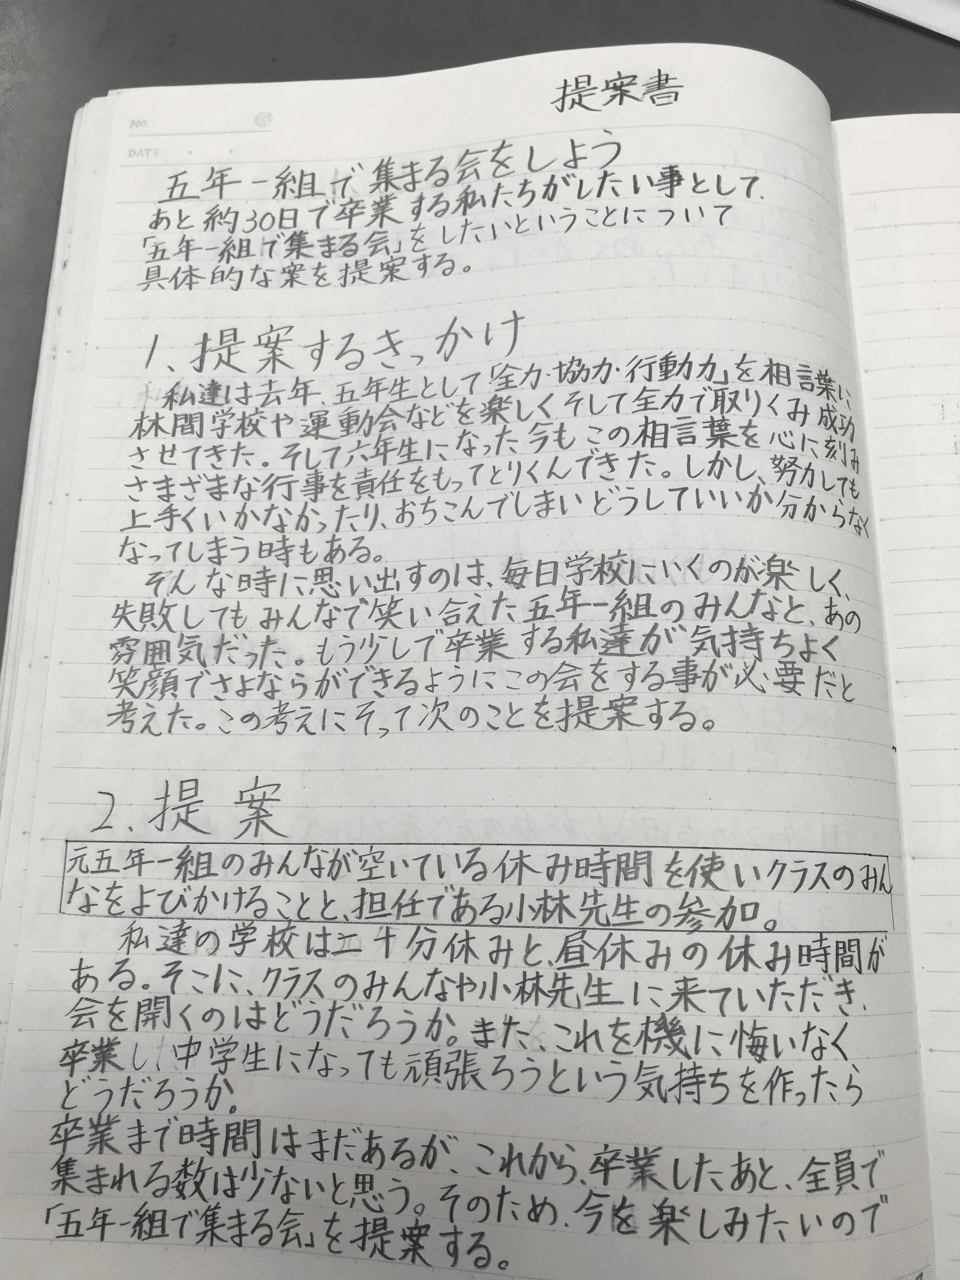 提案書
No.
DATE
五年一組で集まる会をしよう
あと約30日で卒業する私たちがしたい事として、
「五年一組で集まる会」をしたいということについて
具体的な案を提案する。
1、提案するきっかけ
私達は去年、五年生として「全力・協力・行動力」を相言葉に、
林間学校や運動会などを楽しくそして全力で取りくみ成功
させてきた。そして六年生になった今もこの相言葉を心に刻み
さまざまな行事を責任をもってとりくんできた。しかし、努力しても
上手くいかなかったり、おちこんでしまいどうしていいか分からなく
なってしまう時もある。
そんな時に思い出すのは、毎日学校にいくのが楽しく、
失敗してもみんなで笑い合えた五年一組のみんなと、あの
雰囲気だった。もう少しで卒業する私達が気持ちよく
笑顔でさよならができるようにこの会をする事が必要だと
考えた。この考えにそって次のことを提案する。
2、提案
元五年一組のみんなが空いている休み時間を使いクラスのみん
なをよびかけることと、担任である小林先生の参加。
私達の学校は二十分休みと、昼休みの休み時間が
ある。そこに、クラスのみんなや小林先生に来ていただき、
会を開くのはどうだろうか。また、これを機に悔いなく
卒業し中学生になっても頑張ろうという気持ちを作ったら
どうだろうか。
卒業まで時間はまだあるが、これから、卒業したあと、全員で
集まれる数は少ないと思う。そのため、今を楽しみたいので
「五年一組で集まる会」を提案する。